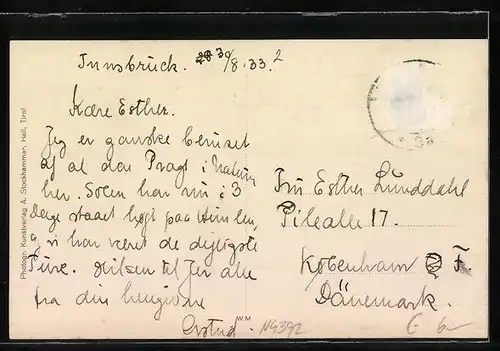 Innsbruck. 30/8.33.
Kære Esther.
Jeg er ganske beruset
af al den Pragt i Naturen
her. Solen har nu i 3
Dage staaet højt paa Himlen,
og vi har været de dejligste
Ture. Hilsen til Jer alle
fra din hengivne
Fru Esther Lunddahl
Pilealle 17.
København F.
Dänemark.
Photogr. Kunstverlag A. Stockhammer, Hall, Tirol
W M
N4392
6